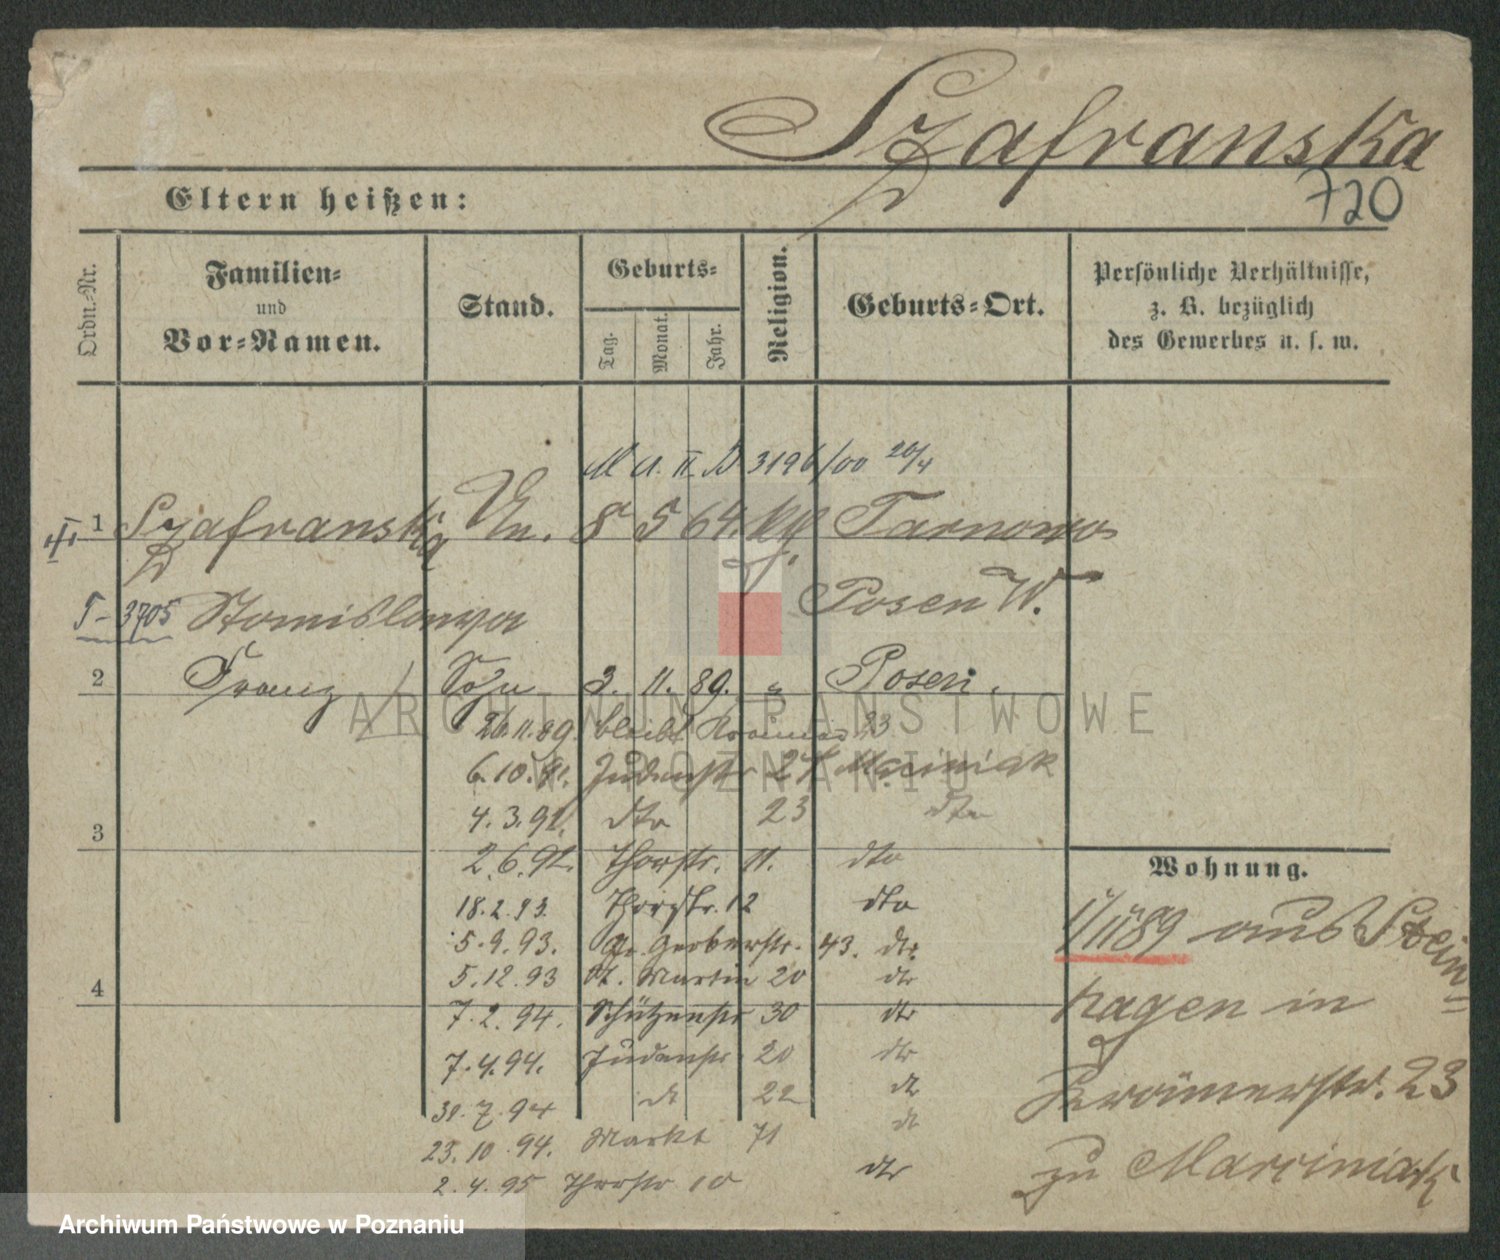 Szafranska
720
Eltern heißen:
Ordn.-Nr.
Familien-
und
Vor-Namen.
Stand.
Geburts-
Tag.
Monat.
Jahr.
Religion.
Geburts-Ort.
Persönliche Verhältnisse,
z. B. bezüglich
des Gewerbes u. s. w.
M U. II. B 3196/00 20/4
1 Szafranska Un. 8 5 64. kath. Tarnowo
T-3705 Stanislawa Posen W.
2 Franz Sohn 3. 11. 89. " Posen.
26.11.89. bleibt Krämerstr 23
6.10. Judenstr 27 Marciniak
4.3.92. dto 23 dto
3
2.6.92. Thorstr. 11. dto
18.2.93. Thorstr. 12 dto
5.9.93. Gr. Gerberstr. 43. dto
5.12.93 St. Martin 20 dto
4
7.2.94. Schützenstr 30 dto
7.4.94. Judenstr 20 dto
31.7.94 do 22 do
23.10.94. Markt 71 do
2.4.95 Thorstr 10 dto
Wohnung.
1/11 89 aus Stein=
hagen in
Krämerstr. 23
zu Marciniak
ARCHIWUM PAŃSTWOWE
W POZNANIU
Archiwum Państwowe w Poznaniu